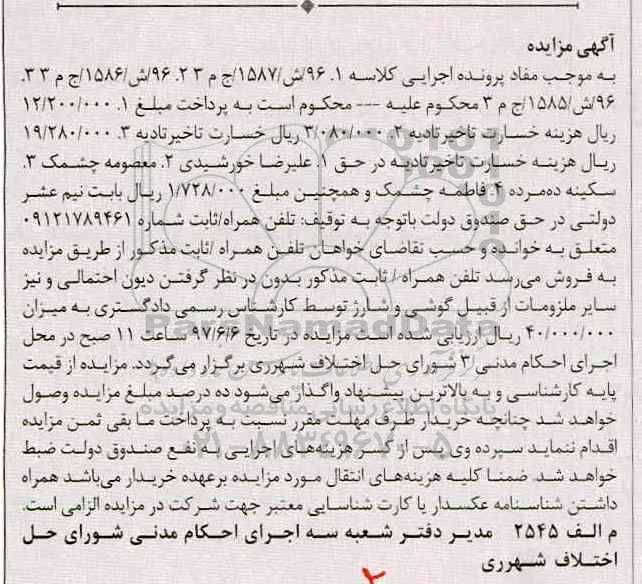 آگهی مزایده
به موجب مفاد پرونده اجرایی کلاسه ۱. ۹۶/ش/۱۵۸۷/ج م ۳ ۲. ۹۶/ش/۱۵۸۶/ج م ۳ ۳.
۹۶/ش/۱۵۸۵/ج م ۳ محکوم علیه --- محکوم است به پرداخت مبلغ ۱. ۱۲/۲۰۰/۰۰۰
ریال هزینه خسارت تاخیرتادیه ۲. ۳/۰۸۰/۰۰۰ ریال خسارت تاخیرتادیه ۳. ۱۹/۲۸۰/۰۰۰
ریال هزینه خسارت تاخیرتادیه در حق ۱. علیرضا خورشیدی ۲. معصومه چشمک ۳.
سکینه ده‌مرده ۴. فاطمه چشمک و همچنین مبلغ ۱/۷۲۸/۰۰۰ ریال بابت نیم عشر
دولتی در حق صندوق دولت باتوجه به توقیف: تلفن همراه/ثابت شماره ۰۹۱۲۱۷۸۹۴۶۱
متعلق به خوانده و حسب تقاضای خواهان تلفن همراه /ثابت مذکور از طریق مزایده
به فروش می‌رسد تلفن همراه / ثابت مذکور بدون در نظر گرفتن دیون احتمالی و نیز
سایر ملزومات از قبیل گوشی و شارژ توسط کارشناس رسمی دادگستری به میزان
۴۰/۰۰۰/۰۰۰ ریال ارزیابی شده است مزایده در تاریخ ۹۷/۶/۶ ساعت ۱۱ صبح در محل
اجرای احکام مدنی ۳ شورای حل اختلاف شهرری برگزار می‌گردد. مزایده از قیمت
پایه کارشناسی و به بالاترین پیشنهاد واگذار می‌شود ده درصد مبلغ مزایده وصول
خواهد شد چنانچه خریدار ظرف مهلت مقرر نسبت به پرداخت ما بقی ثمن مزایده
اقدام ننماید سپرده وی پس از کسر هزینه‌های اجرایی به نفع صندوق دولت ضبط
خواهد شد. ضمنا کلیه هزینه‌های انتقال مورد مزایده برعهده خریدار می‌باشد همراه
داشتن شناسنامه عکسدار یا کارت شناسایی معتبر جهت شرکت در مزایده الزامی است.
م الف ۲۵۴۵ مدیر دفتر شعبه سه اجرای احکام مدنی شورای حل
اختلاف شهرری
ParsNamadData
پایگاه اطلاع رسانی مناقصه و مزایده
۰۲۱-۸۸۳۴۹۶۷۰-۵